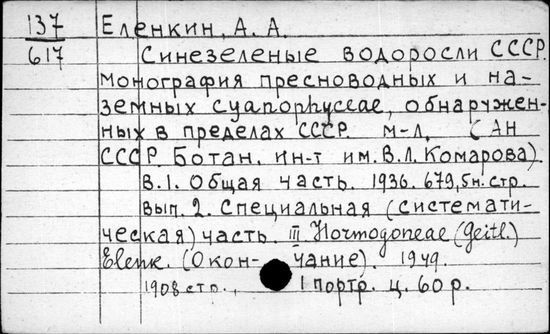 137
617
Еленкин, А. А.
Синезеленые водоросли СССР.
Монография пресноводных и на-
земных Cyanophyceae, обнаружен-
ных в пределах СССР. М-Л, (АН
СССР. Ботан. ин-т им. В.Л. Комарова).
В.1. Общая часть. 1936. 679,5н. стр.
Вып. 2. Специальная (системати-
ческая) часть. III Hormogoneae (Geitl.)
Elenk. (Окон- чание). 1949.
1908 стр., 1 портр. ц. 60 р.